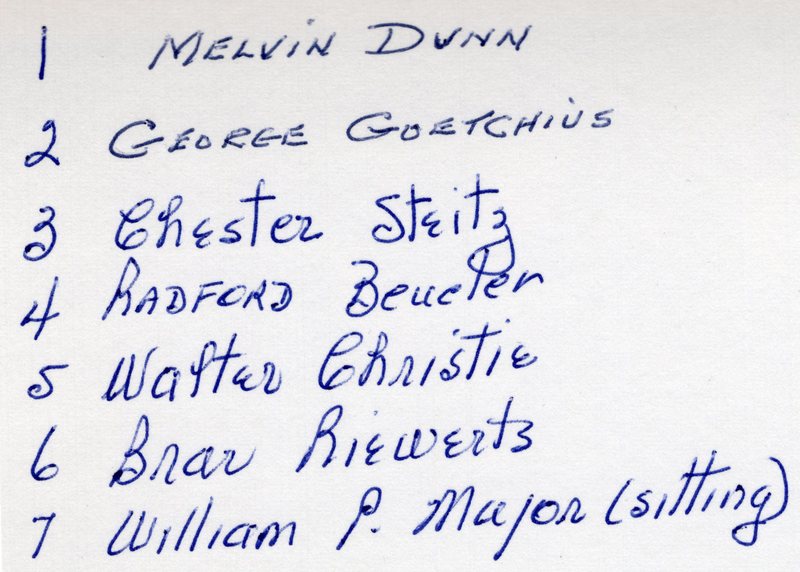 1 MELVIN DUNN
2 GEORGE GOETCHIUS
3 Chester Steitz
4 RADFORD Beucler
5 Walter Christie
6 Brar Riewerts
7 William P. Major (sitting)